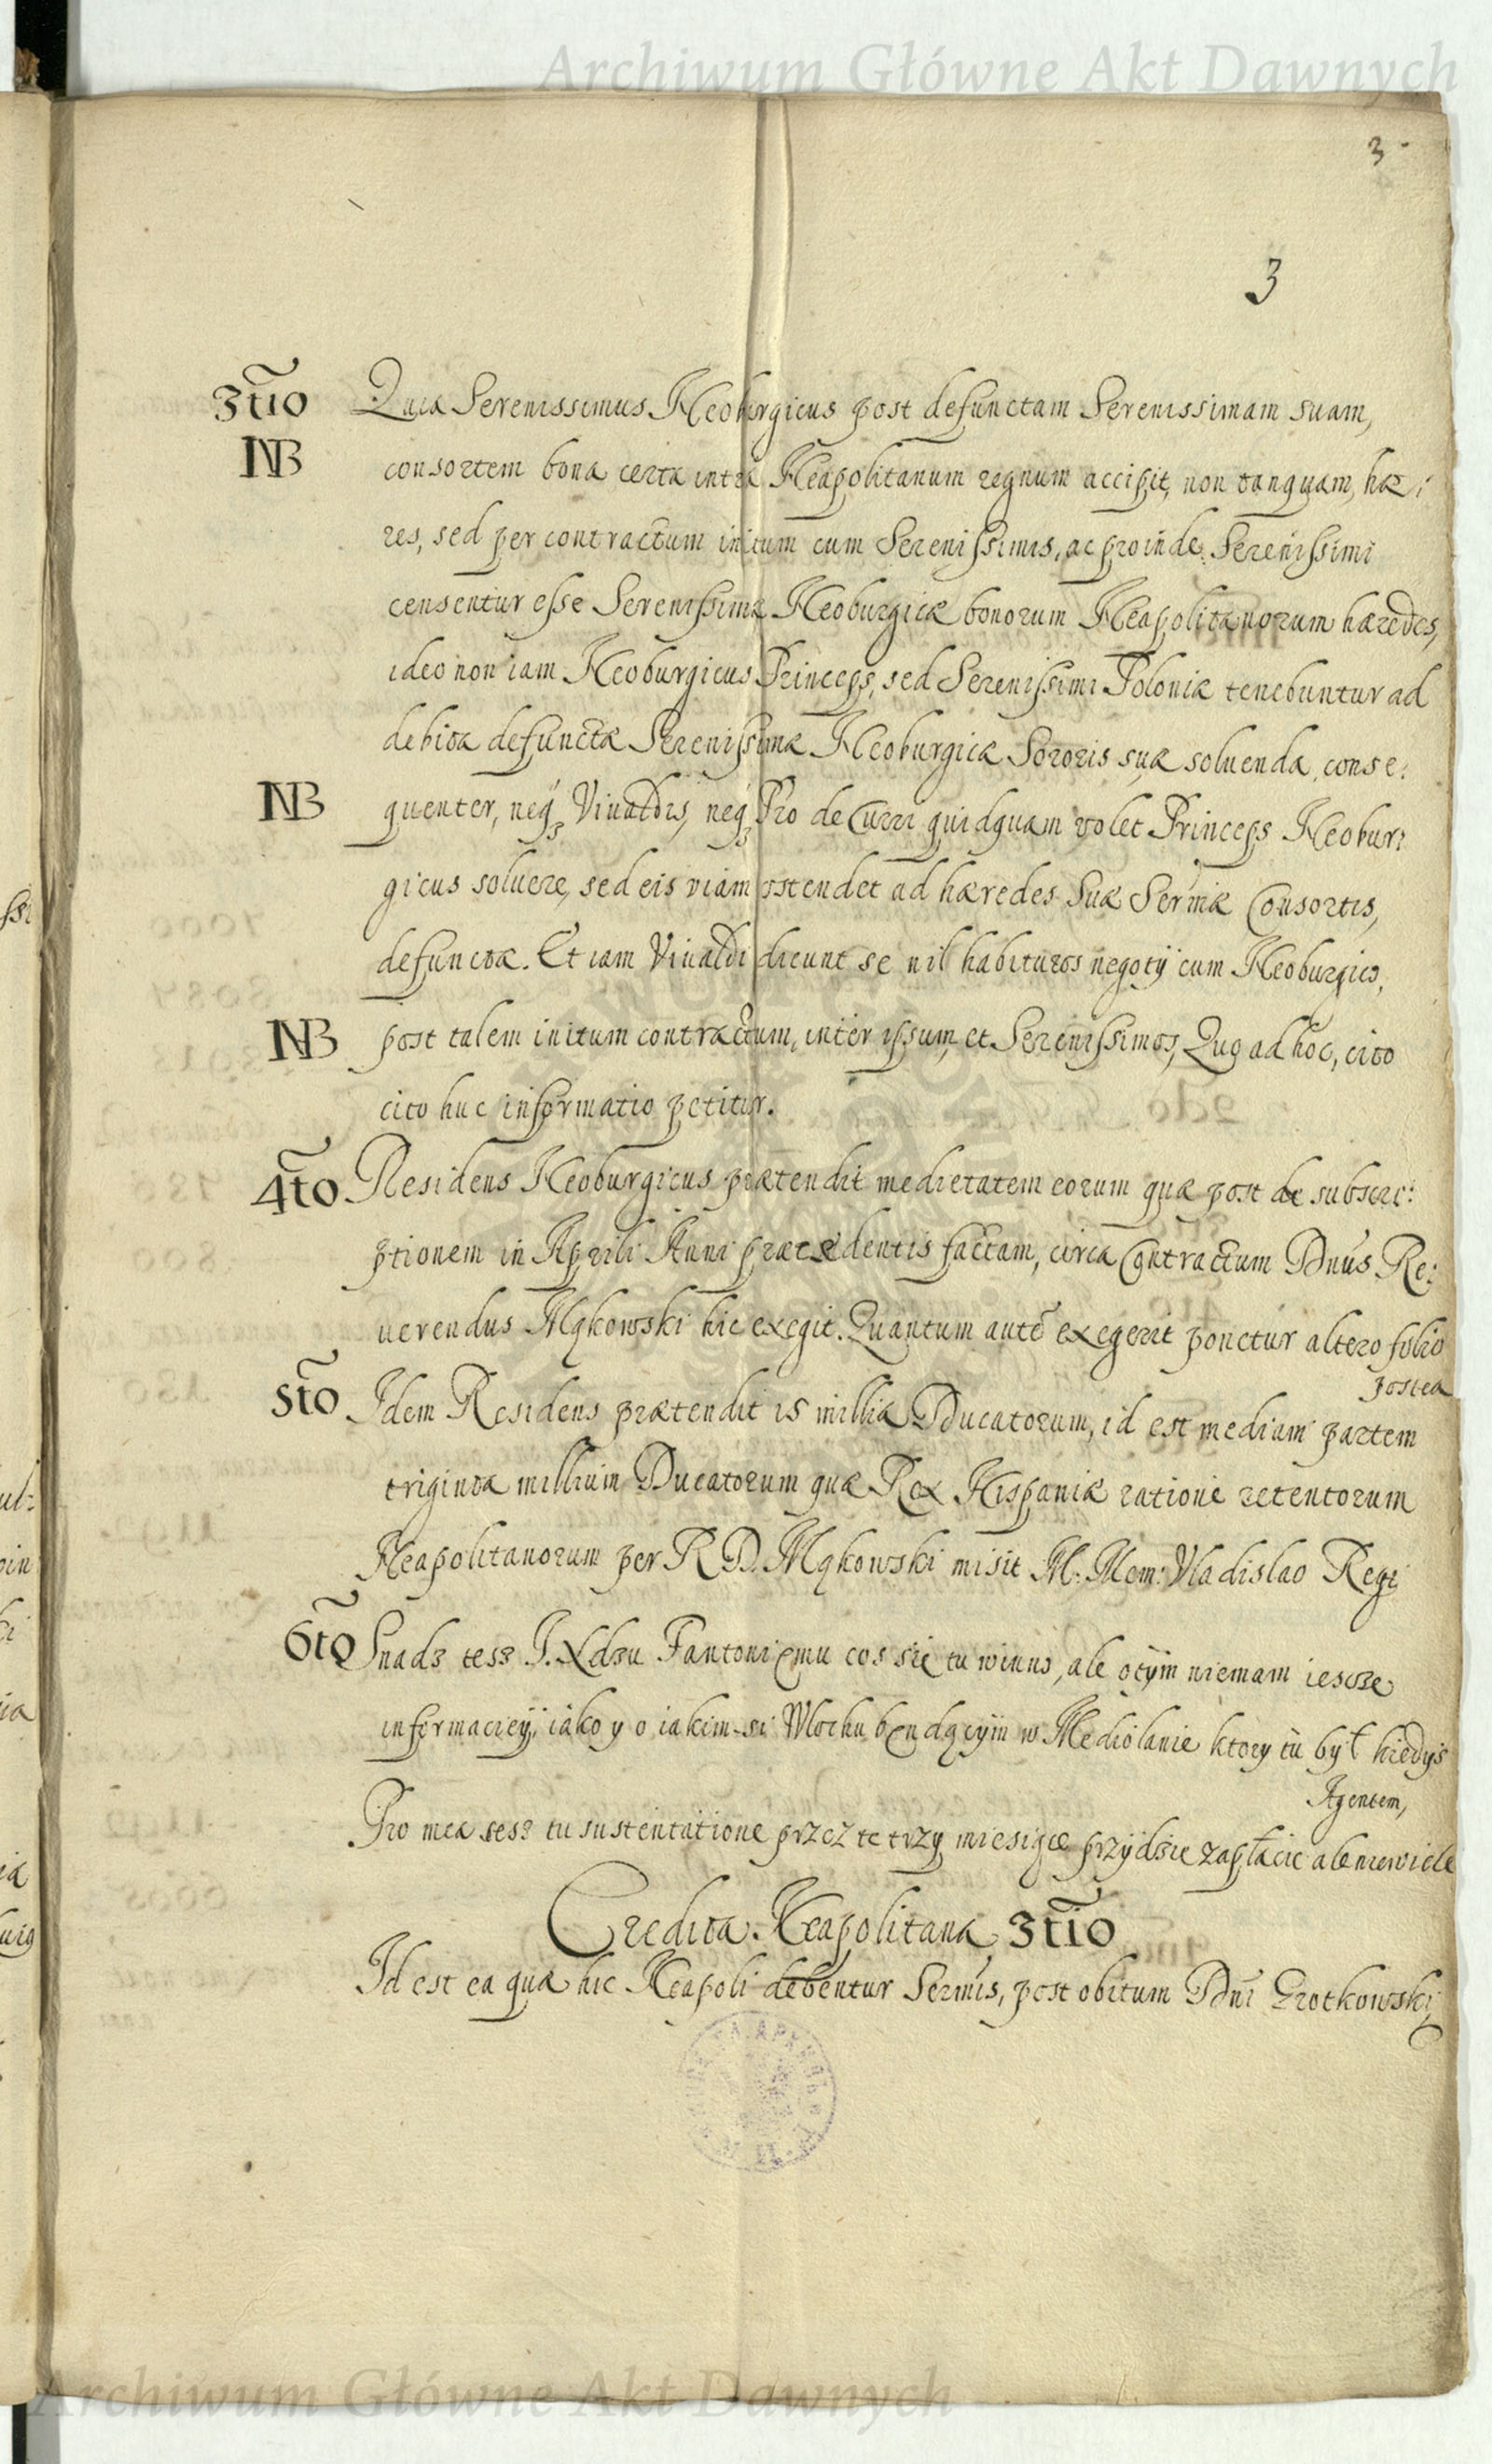 Archiwum Główne Akt Dawnych
3
3
3tio Quia Serenissimus Neoburgicus post defunctam Serenissimam suam,
NB consortem bona certa intra Neapolitanum regnum accipit, non tanquam, hæ:
res, sed per contractum initum cum Serenissimis, ac proinde Serenissimi
censentur esse Serenissimæ Neoburgicæ bonorum Neapolitanorum hæredes,
ideo non iam Neoburgicus Princeps, sed Serenissimi Poloniæ tenebuntur ad
debita defunctæ Serenissimæ Neoburgicæ Sororis suæ soluenda, conse:
NB quenter, neq3 Viualdis, neq3 Pro de Curri quidquam volet Princeps Neobur:
gicus soluere, sed eis viam ostendet ad hæredes Suæ Sermæ Consortis,
defunctæ. Et iam Viualdi dicunt se nil habituros negotÿ cum Neoburgico,
NB post talem initum contractum, inter ipsum, et Serenissimos, Quo ad hoc, cito
cito huc informatio petitur.
4to Residens Neoburgicus prætendit medietatem eorum quæ post de subscri:
ptionem in Aprili Anni præcedentis factam, circa Contractum Dnus Re:
uerendus Mąkowski hic exegit. Quantum autē exegerit ponetur altero folio
postea
5to Idem Residens prætendit 15 millia Ducatorum, id est mediam partem
triginta millium Ducatorum quæ Rex Hispaniæ ratione retentorum
Neapolitanorum per R. D. Mąkowski misit M: Mem: Vladislao Regi
6to Snadz tesz J. Xdzu Fantoniemu cos się tu winno, ale otÿm niemam iescze
informaciey, iako y o iakim-si Włochu będącÿm w Mediolanie ktory tu był kiedyś
Agentem,
Pro mea tesz tu sustentatione przez te trzy miesiące przÿdzie zapłacic ale niewiele
Credita Neapolitana 3tio
Id est ea quæ hic Neapoli debentur Sermis, post obitum Dni Grotkowski
Archiwum Główne Akt Dawnych